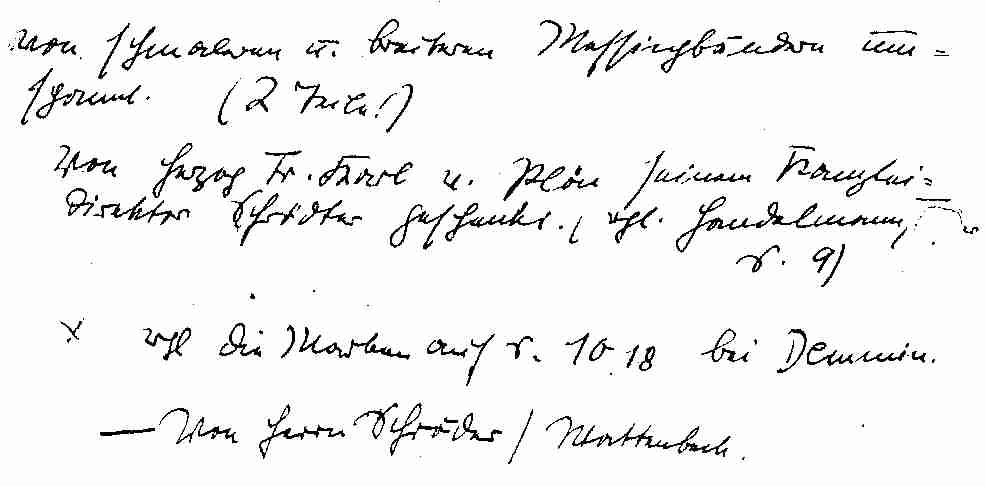 von schmaleren u. breiteren Messingbändern um=
spannt. (2 Teile!)
Von Herzog Fr. Karl v. Plön seinem Kanzlei=
direktor Schrödter geschenkt. (vgl. Handelmann,
S. 9)
x vgl die Marken auf S. 1018 bei Demmin.
— Von Herrn Schröder / Wattenbek.